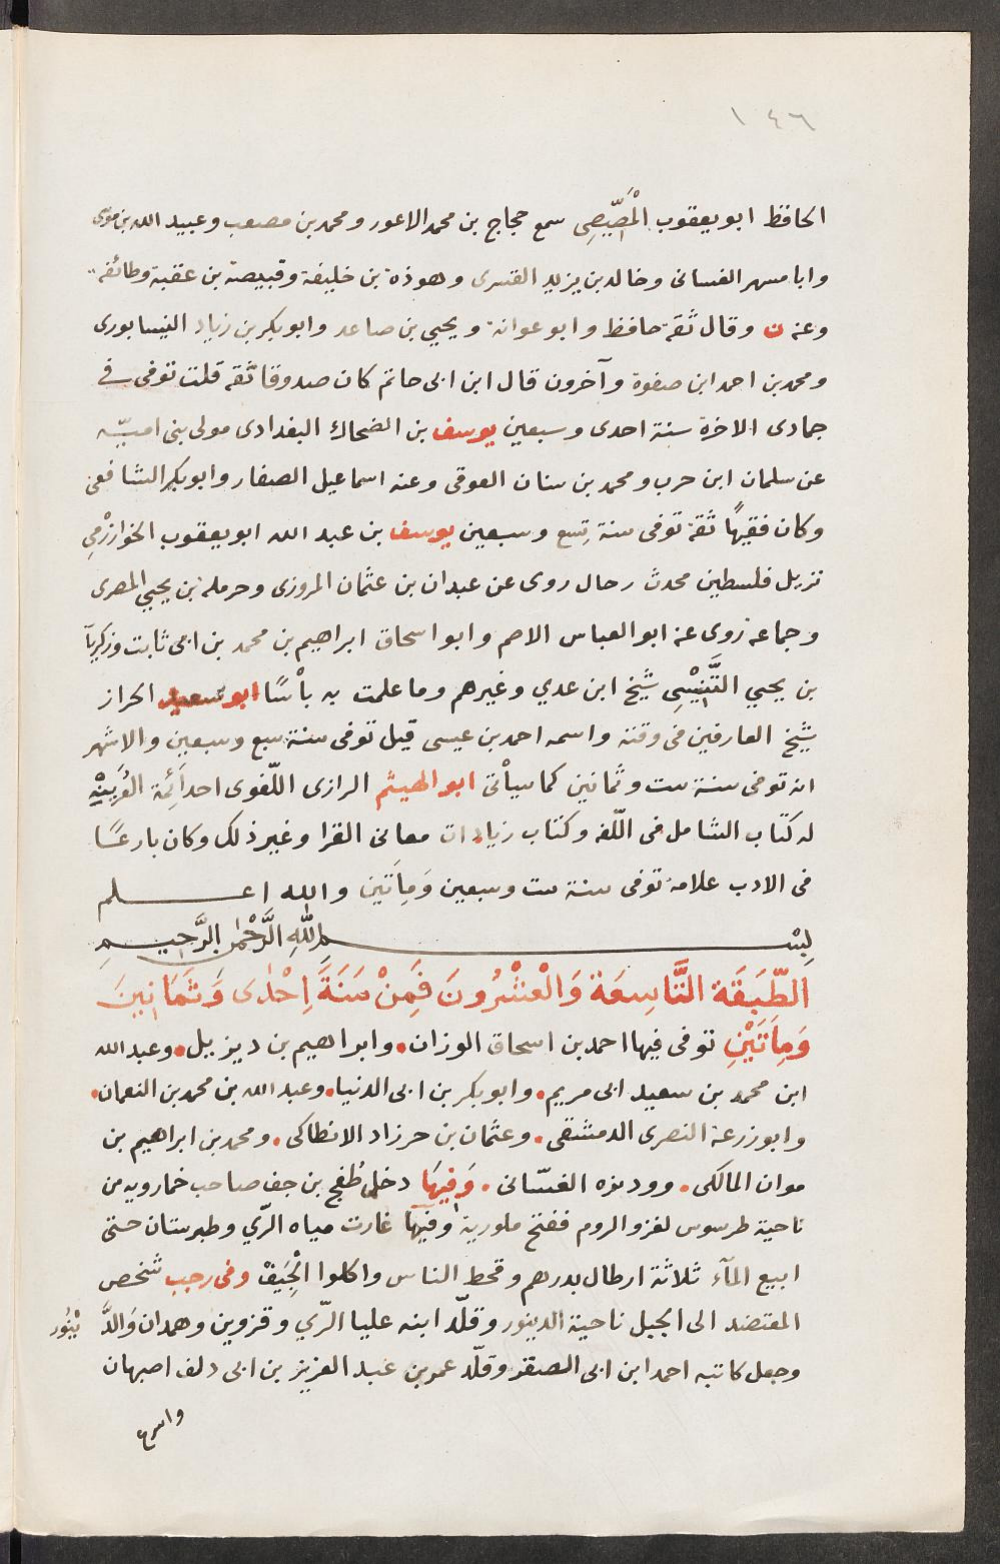 ١٤٦
الحافظ ابو يعقوب الْمَصِّيصِى سمع حجاج بن محمد الاعور ومحمد بن مصعب وعبيد الله بن موسى
وابا مسهر الغسانى وخالد بن يزيد القسرى وهوذة بن خليفة وقبيصة بن عقبة وطائفه
وعنه ن وقال ثقة حافظ وابو عوانة ويحيي بن صاعد وابو بكر بن زياد النيسابورى
ومحمد بن احمد ابن صفوة وآخرون قال ابن ابى حاتم كان صدوقا ثقه قلت توفى فى
جمادى الاخرة سنة احدى وسبعين يوسف بن الضحاك البغدادى مولى بنى اميّه
عن سلمان ابن حرب ومحمد بن سنان العوقى وعنه اسماعيل الصفار وابو بكر الشافعى
وكان فقيهًا ثقة توفى سنة تِسع وسبعين يوسف بن عبد الله ابو يعقوب الخوارزْمِي
نزيل فلسطين محدث رحال روى عن عبدان بن عثمان المروزى وحرمله بن يحيي المصرى
وجماعه روى عنه ابو العباس الاصم وابو اسحاق ابراهيم بن محمد بن ابى ثابت وزكريآ
بن يحيي التَّنِيْسِى شيخ ابن عدي وغيرهم وما علمت به بأسًا ابو سعيد الحراز
شيخ العارفين فى وقته واسمه احمد بن عيسى قيل توفى سنة سبع وسبعين والاشهر
انه توفى سنة ست وثمانين كما سيأتى ابو الهيثم الرازى اللّغوى احد اَئِمة العَرَبِيّهِ
له كتاب الشامل فى اللّغه وكتاب زيادات معانى القرا وغير ذلك وكان بارعًا
فى الادب علامة توفى سنة ست وسبعين وَمِاَتَين والله اعلم
بِسْمِ اللّٰهِ الرَّحْمٰنِ الرَّحِيمِ
الطَّبَقَة التَّاسِعَة وَالْعِشْرُونَ فَمِنْ سَنَةَ اِحْدٰى وَثَمَانِينَ
وَمِاَتَيْنِ توفى فيها احمد بن اسحاق الوزان • وابراهيم بن ديزيل • وعبد الله
ابن محمد بن سعيد ابى مريم • وابو بكر بن ابى الدنيا • وعبد الله بن محمد بن النعمان •
وابو زرعة النصرى الدمشقى • وعثمان بن حرزاد الانطاكى • ومحمد بن ابراهيم بن
موان المالكى • ووديزه الغسّانى • وَفِيهَا دخل طُغج بن جف صاحب خمارويه من
ناحية طرسوس لغزو الروم ففتح ملورية وفيها غارت مياه الرّي وطبرستان حتى
ابيع المآء ثلاثة ارطال بدرهم وقحط الناس واكلوا الْجِيَفْ وفى رجب شخص
المعتضد الى الجبل ناحية الدينور وقلّد ابنه عليا الرّي وقزوين وهمدان وَالدَّيْنُور
وجعل كاتبه احمد ابن ابى الصقر وقلّد عمر بن عبد العزيز بن ابى دلف اصبهان
واسرع